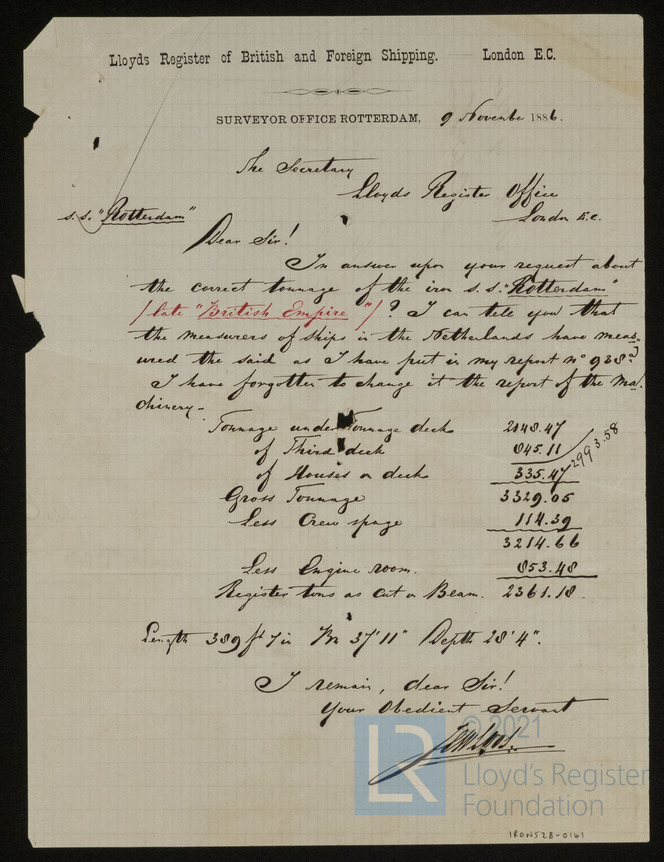 Lloyds Register of British and Foreign Shipping. London E.C.
SURVEYOR OFFICE ROTTERDAM, 9 Novembe 1886.
The Secretary
Lloyds Register Office
London E.C.
s.s. "Rotterdam"
Dear Sir!
In answer upon your request about
the correct tonnage of the iron s.s. "Rotterdam"
/late "British Empire"/? I can tell you that
the measurers of ships in the Netherlands have meas-
ured the said as I have put in my report no 938.
I have forgotten to change it the report of the Ma-
chinery.
Tonnage under Tonnage deck 2148.47
of Third deck 845.11 2993.58
of Houses on deck 335.47
Gross Tonnage 3329.05
Less Crew spage 114.39
3214.66
Less Engine room. 853.48
Register tons as cut on Beam. 2361.18.
Length 389 ft 7 in Br 37'11" Depth 28'4".
I remain, dear Sir!
Your Obedient Servant
© 2021
LR
Lloyd's Register
Foundation
IRON528-0141